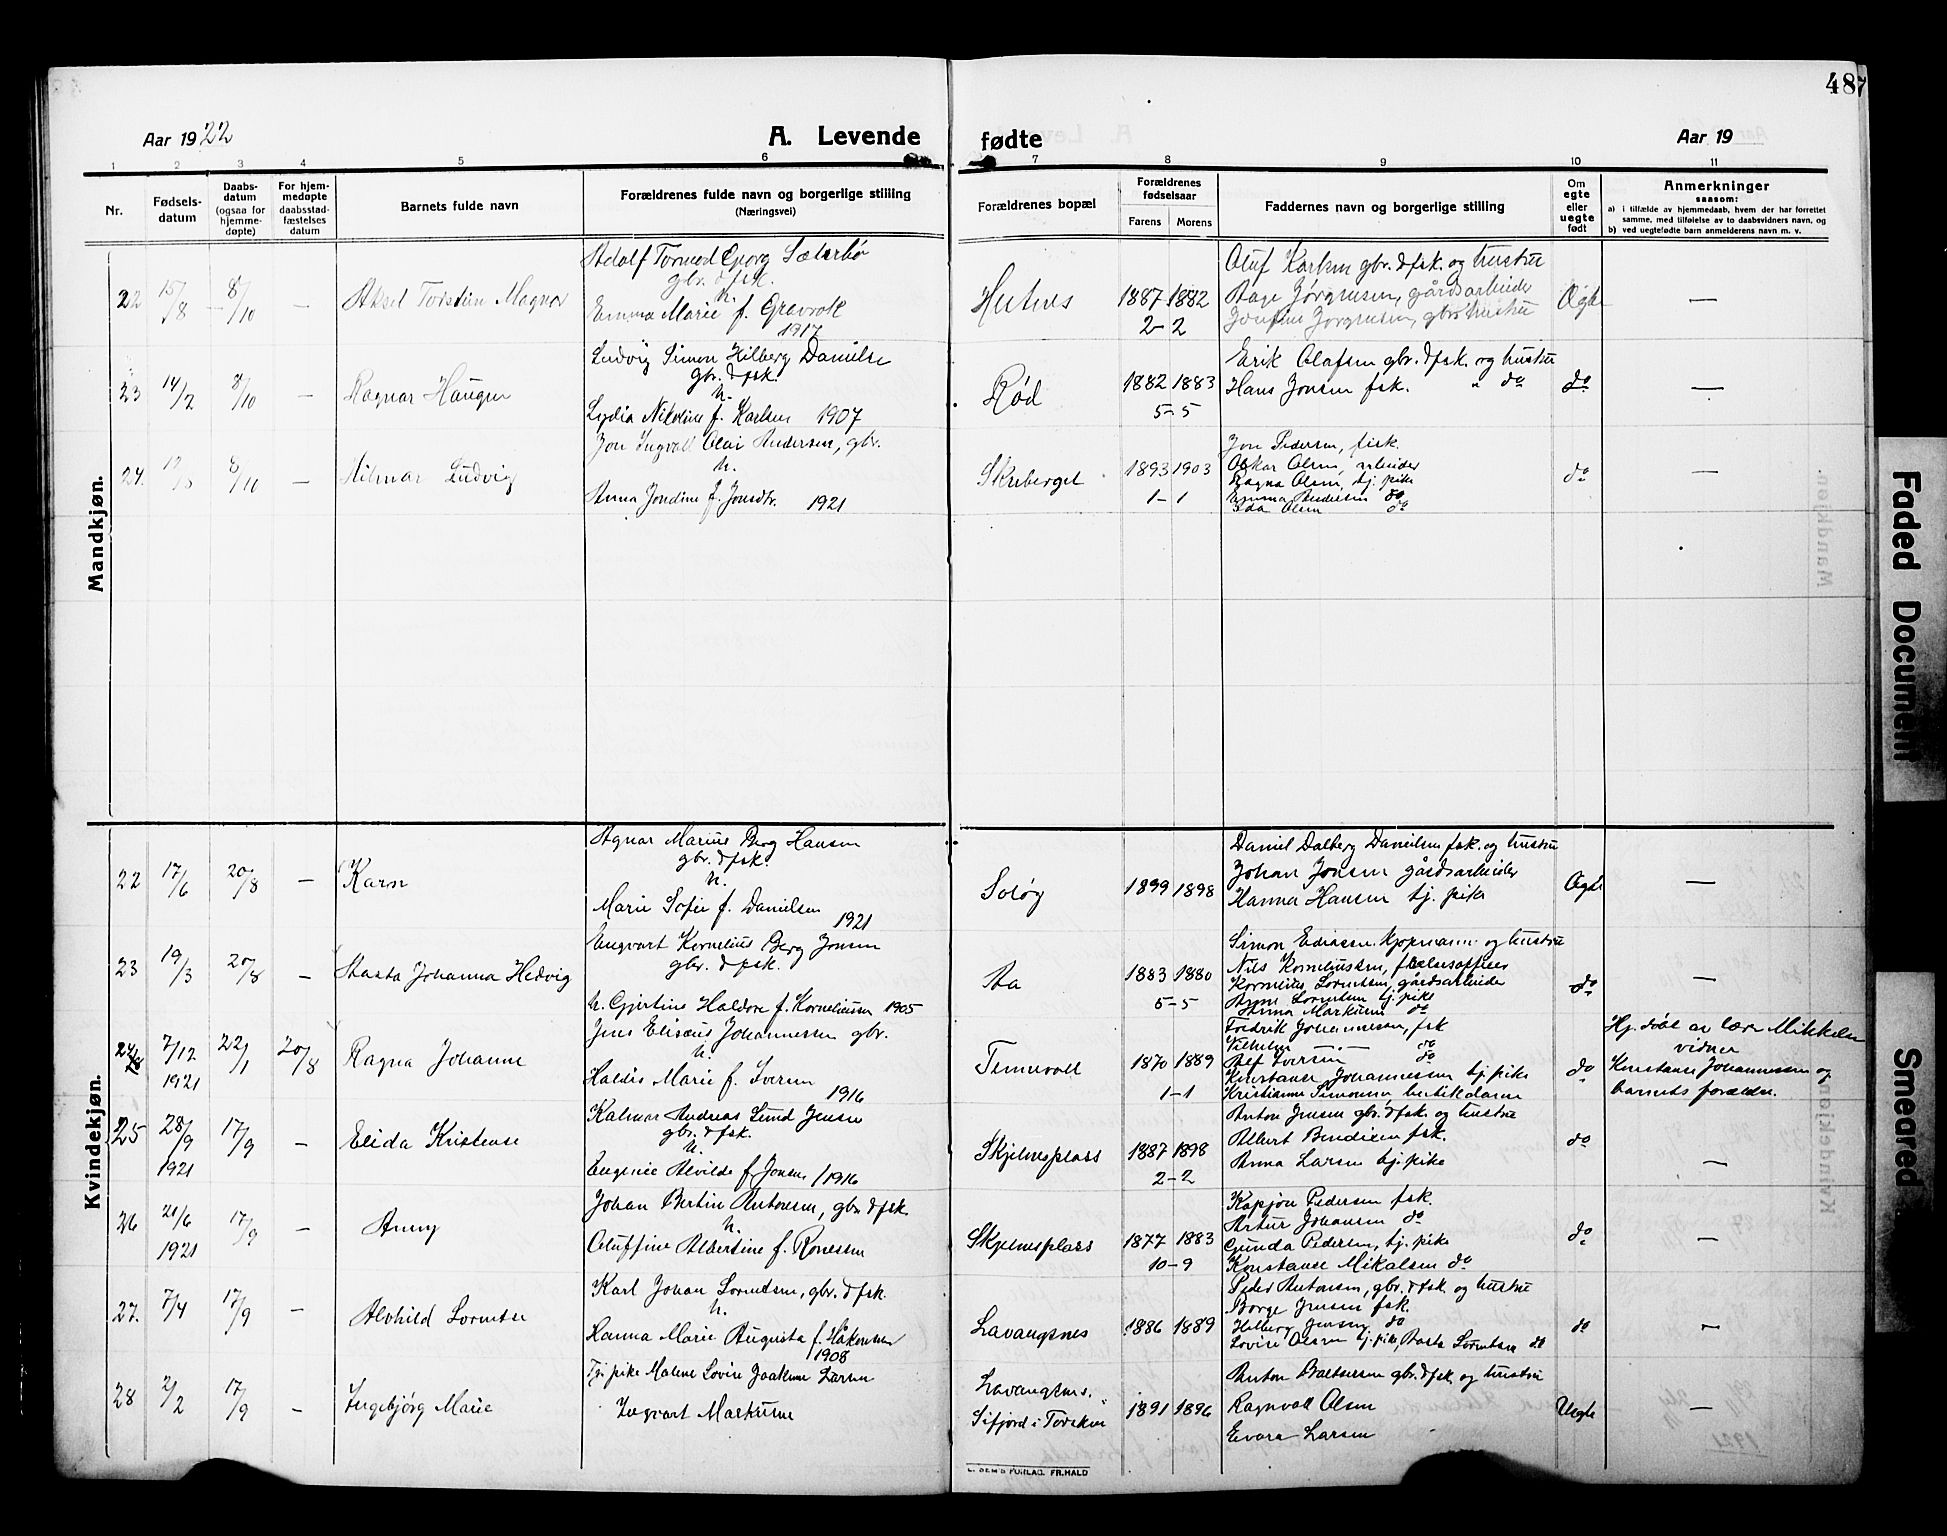 487
Aar 1922
A. Levende
fødte
Aar 19
1 2 3 4 5 6 7 8 9 10 11
Nr.
Fødsels-
datum
Daabs-
datum
(ogsaa for
hjemme-
døpte)
For hjem-
medøpte
daabsstad-
fæstelses
datum
Barnets fulde navn
Forældrenes fulde navn og borgerlige stilling
(Næringsvei)
Forældrenes bopæl
Forældrenes
fødselsaar
Farens Morens
Faddernes navn og borgerlige stilling
Om
egte
eller
uegte
født
Anmerkninger
saasom:
a) i tilfælde av hjemmedaab, hvem der har forrettet
samme, med tilføielse av to daabsvidners navn, og
b) ved uegtefødte barn anmelderens navn m. v.
Mandkjøn.
22 15/8 8/10 — Aksel Torstein Magnar
Adolf Tormod Georg Sæterbø
gbr. & fsk.
h.
Emma Marie f. Gravrok
1917
Hestnes
1887 1882
2 - 2
Oluf Karlsen gbr. & fsk. og hustru
Aage Jørgensen, gårdsarbeider
Josefine Jørgensen, gbr. hustru
Ægte
—
23 14/2 8/10 — Ragnar Haugen
Ludvig Simon Hilberg Danielse
gbr. & fsk.
h.
Lydia Nikoline f. Karlsen 1907
Rød
1882 1883
5 - 5
Erik Olafsen gbr. & fsk. og hustru
Hans Jonsen fsk. " do
do
—
24. 8/10 — Hilmar Ludvig
Jon Ingvall Olai Andersen, gbr.
h.
Anna Jondine f. Jonsdtr. 1921
Skreberget
1893 1903
1 - 1
Jon Pedersen, fisk.
Oskar Olsen, arbeider
Ragna Olsen, tj. pike
Emma Andersen do
Ida Olsen do
do
—
Kvindekjøn.
22 17/6 20/8 — Karn
Agnar Marius Berg Hansen
gbr. & fsk.
h.
Marie Sofie f. Danielsen
1921
Soløy
1899 1898
Daniel Dalberg Danielsen fsk. og hustru
Johan Jonsen gårdsarbeider
Hanna Hansen tj. pike
Ægte
—
23 19/3 20/8 — Aasta Johanna Hedvig
Engvart Kornelius Berg Jonsen
gbr. & fsk.
h. Gjertine Haldore f. Korneliussen 1905
Aa
1883 1880
5 - 5
Simon Ediassen Kjøpmann og hustru
Nils Korneliussen,
Kornelius Lorentsen, gårdsarbeider
Anne Lorentsen tj. pike
Anna Markusen do
do
—
24 7/12 1921 22/1 20/8 Ragna Johanne
Jens Eliseus Johannessen gbr.
h.
Haldis Marie f. Iversen
1916
Tennevoll
1870 1889
1 - 1
Fredrik Johannessen, fsk
Vilhelm — " — do
Alf Iversen do
Konstanse Johannessen tj. pike
Kristianne Simonsen butikdame
do
Hj. døbt av lær. Mikkelsen
vidner
Konstanse Johannessen og
barnets forældre.
25 28/9 1921 17/9 — Elida Kristense
Kalmar Andreas Lund Jensen
gbr. & fsk.
h.
Eugenie Alvilde f. Jonsen 1916
Skjelnesplass
1887 1898
2 - 2
Anton Jensen gbr. & fsk. og hustru
Albert Bendixen fsk.
Anna Larsen tj. pike
do
—
26 21/6 1921 17/9 — Anny
Johan Bertin Antonsen, gbr. & fsk.
h.
Oluffine Albertine f. Ronessen
Skjelnesplass
1877 1883
10 - 9
Kapjon Pedersen fsk.
Artur Johansen do
Gunda Pedersen, tj. pike
Konstanse Mikalsen do
do
—
27. 7/4 17/9 — Alvhild Lorentse
Karl Johan Lorentsen, gbr. & fsk.
h.
Hanna Marie Augusta f. Håkonsen
1908
Lavangsnes
1886 1889
Peder Antonsen, gbr. & fsk. og hustru
Borge Jensen fsk.
Hilberg Jensen do
Lovise Olsen tj. pike, Aasta Lorentsen do
do
—
28 2/2 17/9 — Ingebjørg Marie
Tj. pike Malene Lovise Joakime Larsen
Ingvart Markusen
Lavangsnes.
Sifjord i Torsken
1891 1896
Anton Baltsersen gbr. & fsk. og hustru
Ragnvall Olsen
Evora Larsen
Uegte
—
E. SEM'S FORLAG. FR.HALD
Faded Document
Smeared